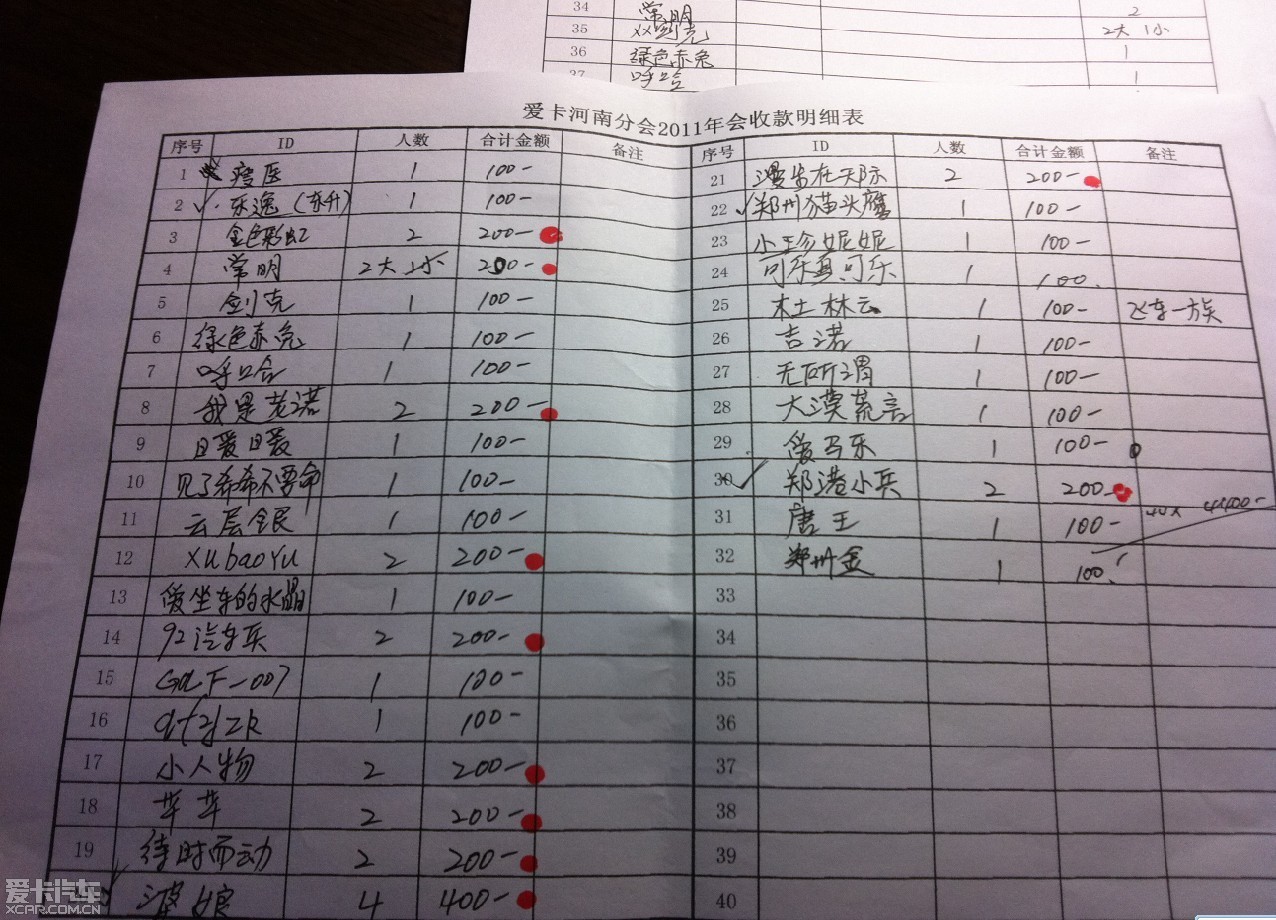 34 常明 2
35 双剑克 2大1小
36 绿色赤兔 1
37 呼哈 1
爱卡河南分会2011年会收款明细表
序号 ID 人数 合计金额 备注
1 瘦医 1 100-
2 乐逸（东升） 1 100-
3 金色彩虹 2 200-
4 常明 2大1小 200-
5 剑克 1 100-
6 绿色赤兔 1 100-
7 呼哈 1 100-
8 我是老诺 2 200-
9 日爱日爱 1 100-
10 见了希希不要命 1 100-
11 云层银 1 100-
12 XUbaoYu 2 200-
13 爱坐车的水晶 1 100-
14 92汽车兵 2 200-
15 GaLF-007 1 100-
16 1 100-
17 小人物 2 200-
18 苹苹 2 200-
19 待时而动 2 200-
婆娘 4 400-
序号 ID 人数 合计金额 备注
21 漫步在天际 2 200-
22 郑州猫头鹰 1 100-
23 小珍妮妮 1 100-
24 可乐真可乐 1 100.
25 木土林云 1 100- 飞车一族
26 吉诺 1 100-
27 无所谓 1 100-
28 大漠荒言 1 100-
29 爱马乐 1 100-
30 郑港小兵 2 200-
31 唐王 1 100-
32 郑州金 1 100
33
34
35
36
37
38
39
40
爱卡汽车
XCAR.COM.CN